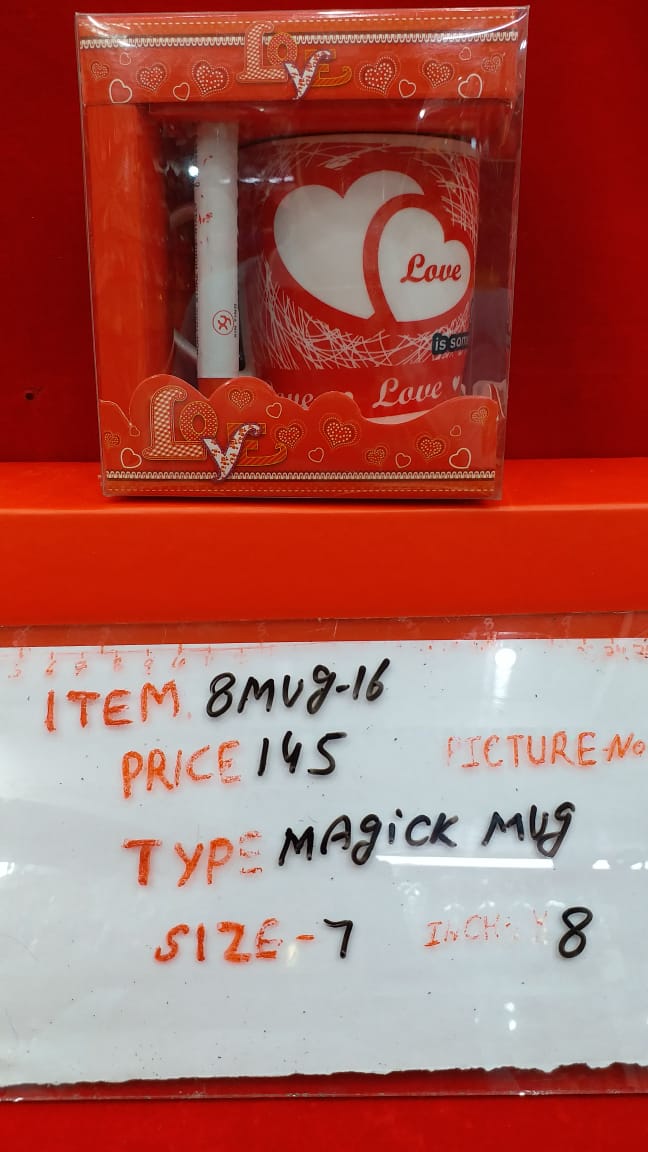 LOVE
Love
is som
Love
LOVE
ITEM. 8MUg-16
PRICE 145 PICTURE-No
TYPE MAgiCK MUg
SIZE-7 INCH 8